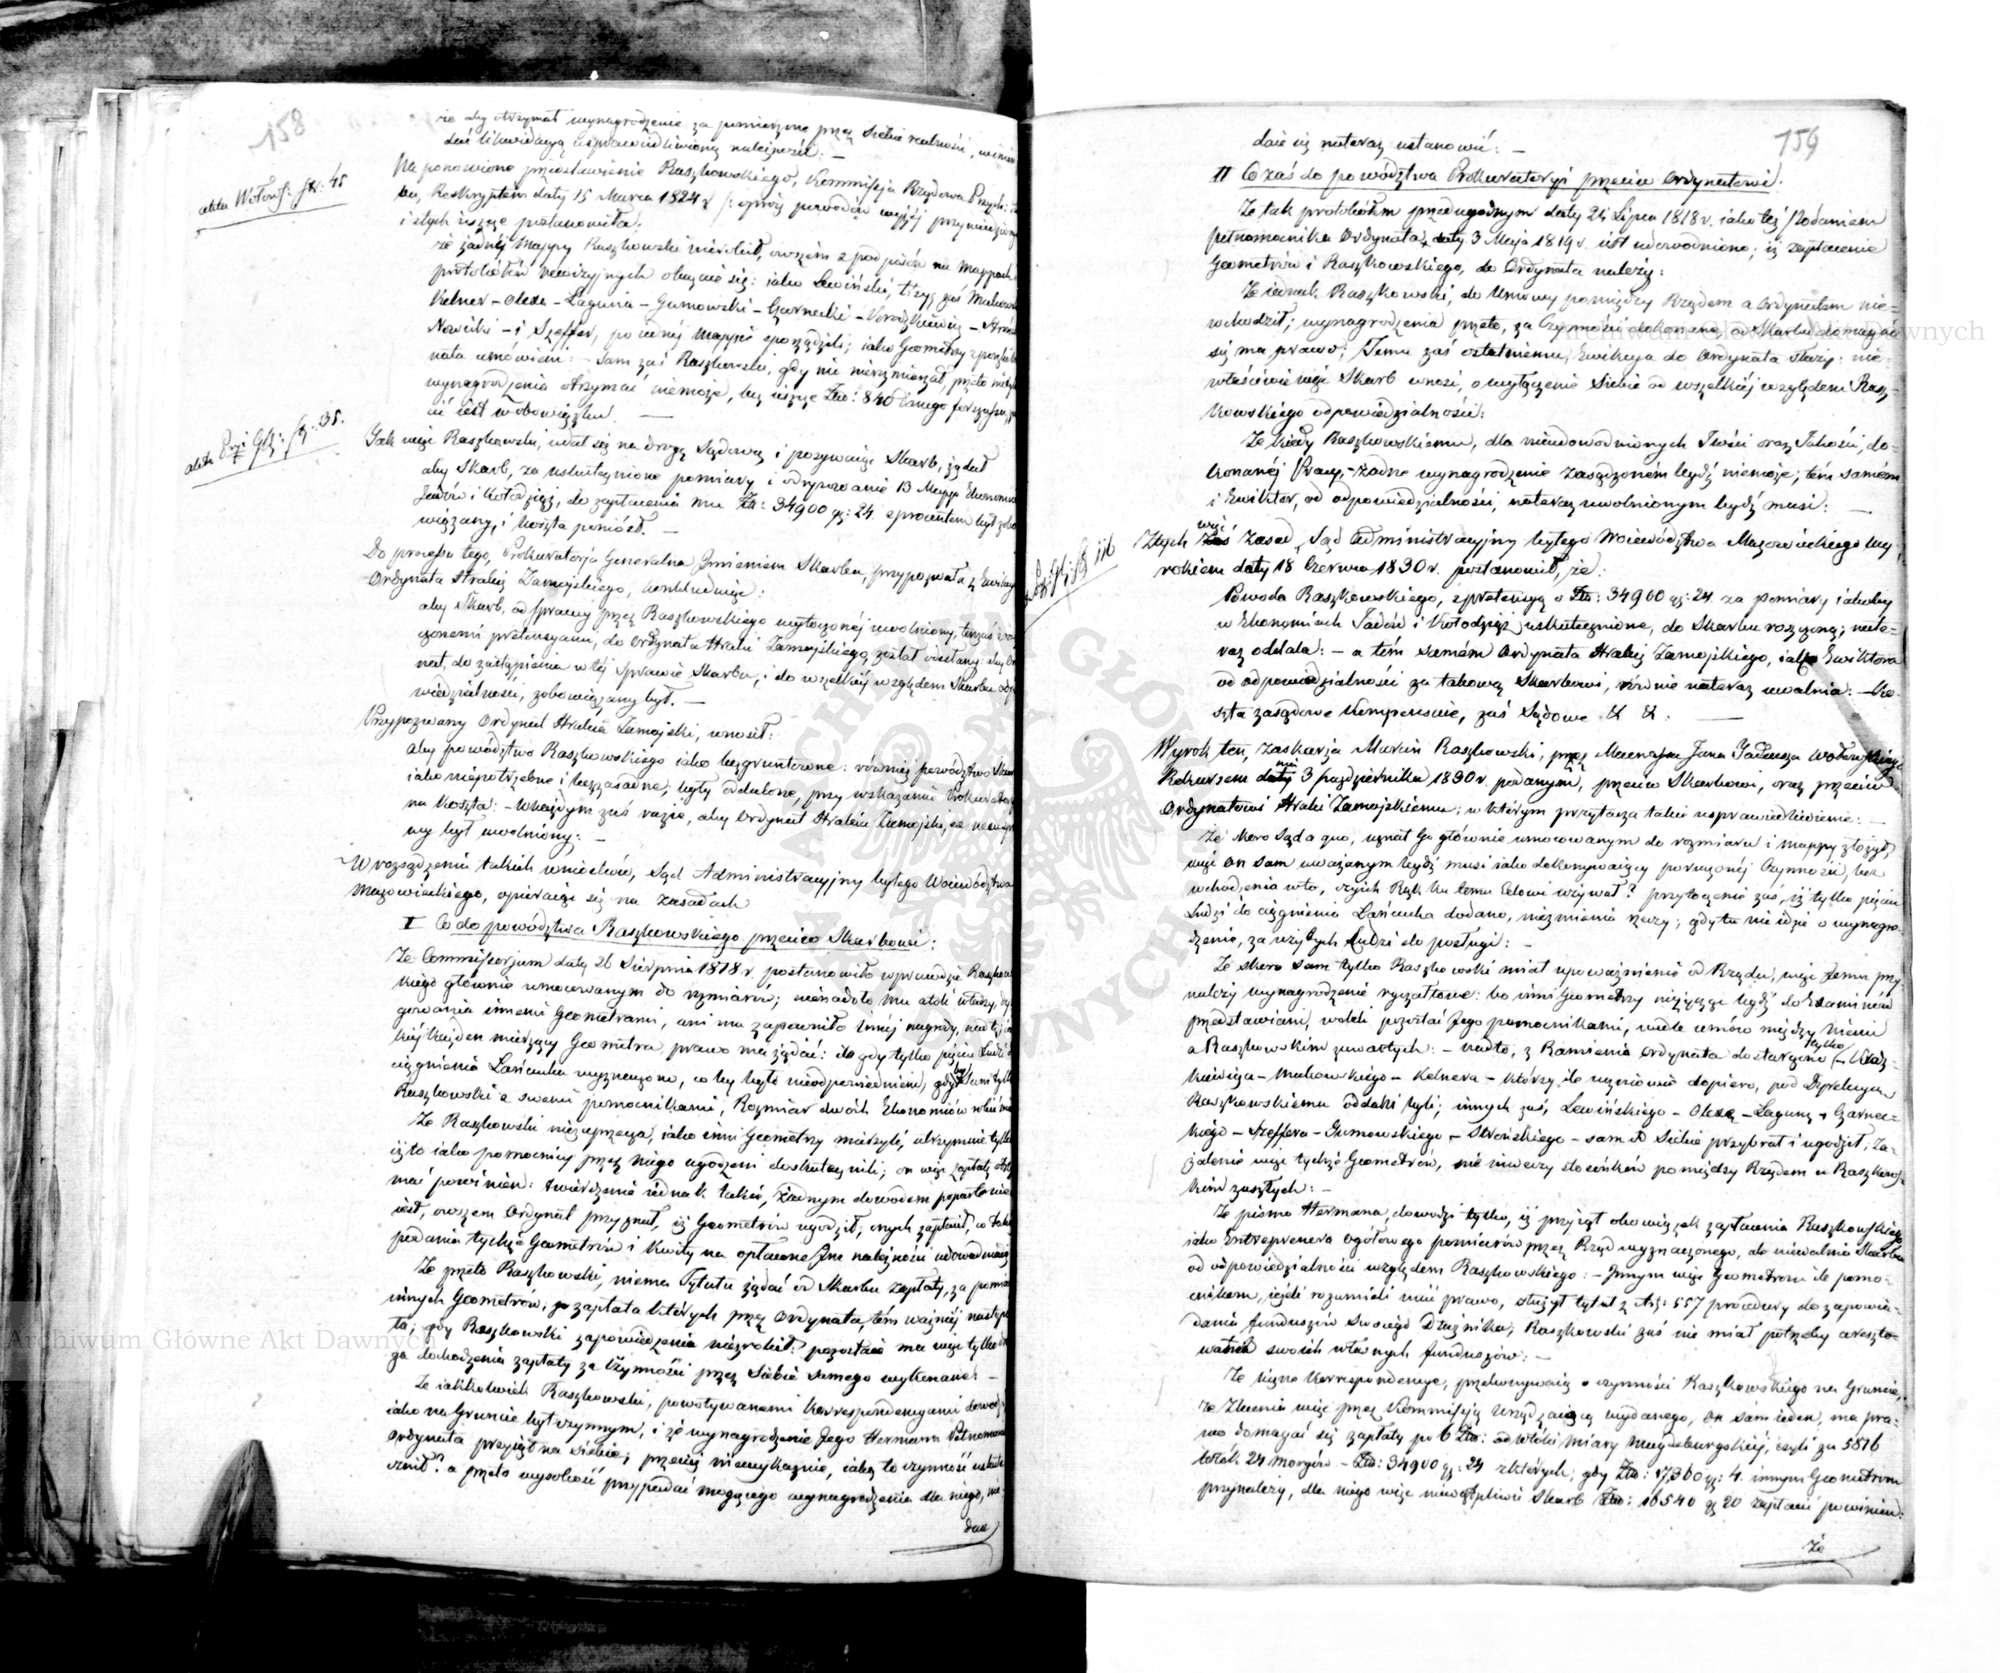 158
że aby otrzymał wynagrodzenie za pomierzone przez siebie realności, winien
dać likwidacyą usprawiedliwioną należność: —
akta Wołows: fol: 45
Na ponowione przedstawienie Raszkowskiego, Kommissja Rządowa Przych: i
bu, Reskryptem daty 15 Marca 1824 r. /: oprócz powodów wyżéj przywiedzionych
i z tych ieszcze postanowiła:
że żadnéj Mappy Raszkowski nierobił, owszem z podpisów na Mappach
protokółów rewizyjnych okazuie się: iako Lewiński, trzy zaś Makows
Kelner – Olexa – Laguna – Gumowski – Czarnecki – – Stroń
Nowicki – i Szeffer, po iednéj Mappie sporządzili; iako Geometrzy
nata umówieni: – sam zaś Raszkowski, gdy nie rozmierzał, przeto
wynagrodzenia otrzymać niemoże, lecz ieszcze Złp: 840 danego forszusu,
cić iest w obowiązku. —
akta fol. 35.
Jak więc Raszkowski, udał się na drogę Sądową i pozywaiąc Skarb, żądał
aby Skarb, za uskutecznione pomiary i odrysowanie 13 Mapp Ekonomii
Jadów i Kołodziąż, do zapłacenia mu Złp: 34900 gr: 24. z procentem był zobo
wiązany, i koszta poniósł. —
Do processu tego, Prokuratorja Generalna Imieniem Skarbu, przypozwała z Ewikcyi
Ordynata Hrabię Zamojskiego, konkluduiąc:
aby Skarb, od sprawy przez Raszkowskiego wytoczonéj uwolniony, tenże z
czonemi pretensyami, do Ordynata Hrabi Zamojskiego, został odesłany: aby Or
nat, do zastąpienia w téj Sprawie Skarbu, i do wszelkiéj względem Skarbu odpo
wiedzialności, zobowiązany był. —
Przypozwany Ordynat Hrabia Zamojski, wnosił:
aby powództwo Raszkowskiego iako bezgruntowne: również powództwo Skar
iako niepotrzebne i bezzasadne, były oddalone, przy wskazaniu Prokurator
na Koszta: – wkażdym zaś razie, aby Ordynat Hrabia Zamojski,
ny był uwolniony: —
W rozsądzeniu takich wniosków, Sąd Administracyjny byłego Woiewództwa
Mazowieckiego, opieraiąc się na zasadach
I Co do powództwa Raszkowskiego przeciw Skarbowi:
Że Commissorjum daty 26 Sierpnia 1818 r. postanowiło wprawdzie Raszkow
kiego głównie umocowanym do rozmiarów; nienadało mu atoli władzy,
gowania innemi Geometrami, ani mu zapewniło innéj nagrody, nad tę, ia
kiéj każden mierzący Geometra, prawo ma żądać: ile gdy tylko pięciu Ludzi
ciągnienia Łańcucha wyznaczono, co by było nieodpowiedniem, gdyby sam tylko
Raszkowski z swemi pomocnikami, Rozmiar dwóch Ekonomiów
Że Raszkowski niezaprzecza, iako inni Geometrzy mierzyli, utrzymuie tylko
iż to iako pomocnicy przez niego ugodzeni doskutecznili; on więc zapłatę
mać powinien: twierdzenie iednak takie, żadnym dowodem poparte nie
iest, owszem Ordynat przyznał, iż Geometrów ugodził; onych zapłacił, co tak
podania tychże Geometrów i Kwity na opłacone Im należności udowadniaią
Że przeto Raszkowski, niema Tytułu żądać od Skarbu zapłaty, za pomia
innych Geometrów; zapłata których przez Ordynata, tém ważniéj nastąpi
ła; gdy Raszkowski zapowiedzenia niezrobił: pozostaie mu więc tylko
ga dochodzenia zapłaty za Czynności przez siebie samego wykonane: —
Że iakkolwiek Raszkowski, powoływanemi Korrespondencyami dowodzi,
iako na Gruncie był czynnym, i że wynagrodzenie Jego Hermann Pełnomo
Ordynata przyiął na siebie; przecież niewykazuie, iaką to czynność uskute
cznił? a przeto wysokość przypadać mogącego wynagrodzenia dla niego, nie
daie
159
daie się nateraz ustanowić: —
II Co zaś do powództwa Prokuratoryi przeciw Ordynatowi.
Że tak protokółem przedugodnym daty 24 Lipca 1818 r. iako téż Podaniem
pełnomocnika Ordynata, daty 3 Maja 1819 r. iest udowodniono; iż zapłacenie
Geometrów i Raszkowskiego, do Ordynata należy:
Że iednak Raszkowski, do Umowy pomiędzy Rządem a Ordynatem nie=
wchodził; wynagrodzenia przeto, za Czynności dokonane, od Skarbu domagać
się ma prawo; Temu zaś ostatniemu, Ewikcya do Ordynata służy: nie=
właściwie więc Skarb wnosi, o wyłączenie siebie od wszelkiéj względem Rasz=
kowskiego odpowiedzialności:
Że kiedy Raszkowskiemu, dla nieudowodnionych Ilości oraz Jakości, do=
konanéj Pracy, – żadne wynagrodzenie zasądzoném bydź niemoże; tém samém
i Ewiktor, od odpowiedzialności, nateraz uwolnionym bydź musi: —
Z tych więc zasad, Sąd Administracyjny byłego Woiewództwa Mazowieckiego Wy=
rokiem daty 18 Czerwca 1830 r. postanowił, że:
Powoda Raszkowskiego, z pretensyą o Złp: 34900 gr: 24. za pomiary iakoby
w Ekonomiach Jadów i Kołodziąż uskutecznione, do Skarbu rosczoną; nate=
raz oddala: – a tém samém Ordynata Hrabię Zamojskiego, iako Ewiktora
od odpowiedzialności za takową Skarbowi, równie nateraz uwalnia: – Ko=
szta zasądowe kompensuie, zaś Sądowe & &. —
Wyrok ten, zaskarża Marcin Raszkowski, przez Mecenasa Jana Tadeusza Wołowskiego
Rekursem dnia 3 Października 1830 r. podanym, przeciw Skarbowi, oraz przeciw
Ordynatowi Hrabi Zamojskiemu; w którym przytacza takie usprawiedliwienie: —
Że skoro Sąd a quo, uznał Go głównie umocowanym do rozmiaru i mappy złożył,
więc On sam uważanym bydź musi iako dokonywaiący poruczonéj Czynności, bez
wchodzenia w to, czyich Rąk ku temu Celowi używał? przytoczenie zaś, iż tylko pięciu
Ludzi do ciągnienia Łańcucha dodano, niezmienia rzeczy; gdy tu nie idzie o wynagro=
dzenie, za użytych Ludzi do posługi: —
Że skoro sam tylko Raszkowski miał upoważnienie od Rządu, więc Jemu przy=
należy wynagrodzenie ryczałtowe: bo inni Geometrzy nieżycząc bydź do Examinów
przedstawieni, woleli pozostać Jego pomocnikami, wedle umów między Niemi
a Raszkowskim zawartych: – nadto, z Ramienia Ordynata dostarczono tylko –
kiewicza – Makowskiego – Kelnera – którzy ile uczniowie dopiero, pod Dyrekcyą
Raszkowskiemu oddani byli; innych zaś, Lewińskiego – Olexę – Lagunę – Czarnec=
kiego – Szeffera – Gumowskiego – Strońskiego – sam On Siebie przybrał i ugodził; Za=
żalenie więc tychże Geometrów, nie niweczy stosunków pomiędzy Rządem a Raszkows=
kim zaszłych: —
Że pismo Hermana, dowodzi tylko, iż przyiął obowiązek zapłacenia Raszkowskiego
iako Entreprenera ogółowego pomiarów przez Rząd wyznaczonego, ale nieuwalnia Skarbu
od odpowiedzialności względem Raszkowskiego: – Innym więc Geometrom ile pomo=
cnikom, ieżeli rozumieli mieć prawo, służył tytuł z Art: 557 procedury do zapowie=
dania funduszów swoiego Dłużnika; Raszkowski zaś nie miał potrzeby areszto=
wania swoich własnych funduszów: —
Że liczne korrespondencye, przekonywaią o czynności Raszkowskiego na Gruncie,
że Zlecenia więc przez Kommissją Urządzaiącą wydanego, On sam ieden, ma pra=
wo domagać się zapłaty po 6 Złp: od włóki Miary Magdeburgskiéj, czyli za 5816
włók 24 morgów – Złp: 34900 gr: 24 z których, gdy Złp: 17,360 gr: 4. innym Geometrom
przynależy, dla niego więc niewątpliwie Skarb Złp: 16540 gr 20 zapłacić powinien:
Że
Archiwum Główne Akt Dawnych
Archiwum Główne Akt Dawnych